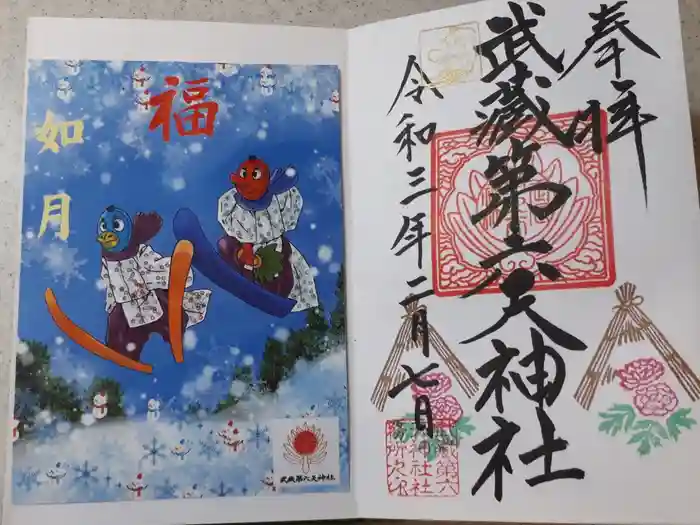 奉拝
武蔵第六天神社
令和三年二月七日
福
如月
武蔵第六天神社